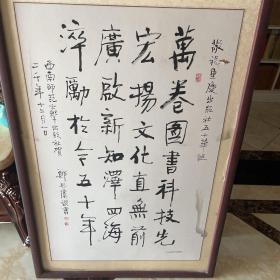 敬祝重慶出版社五十華誕
萬卷圖書科技先
宏揚文化直無前
廣啟新知澤四海
淬勵於今五十年
西南師范大學出版社賀
二千年十二月一日